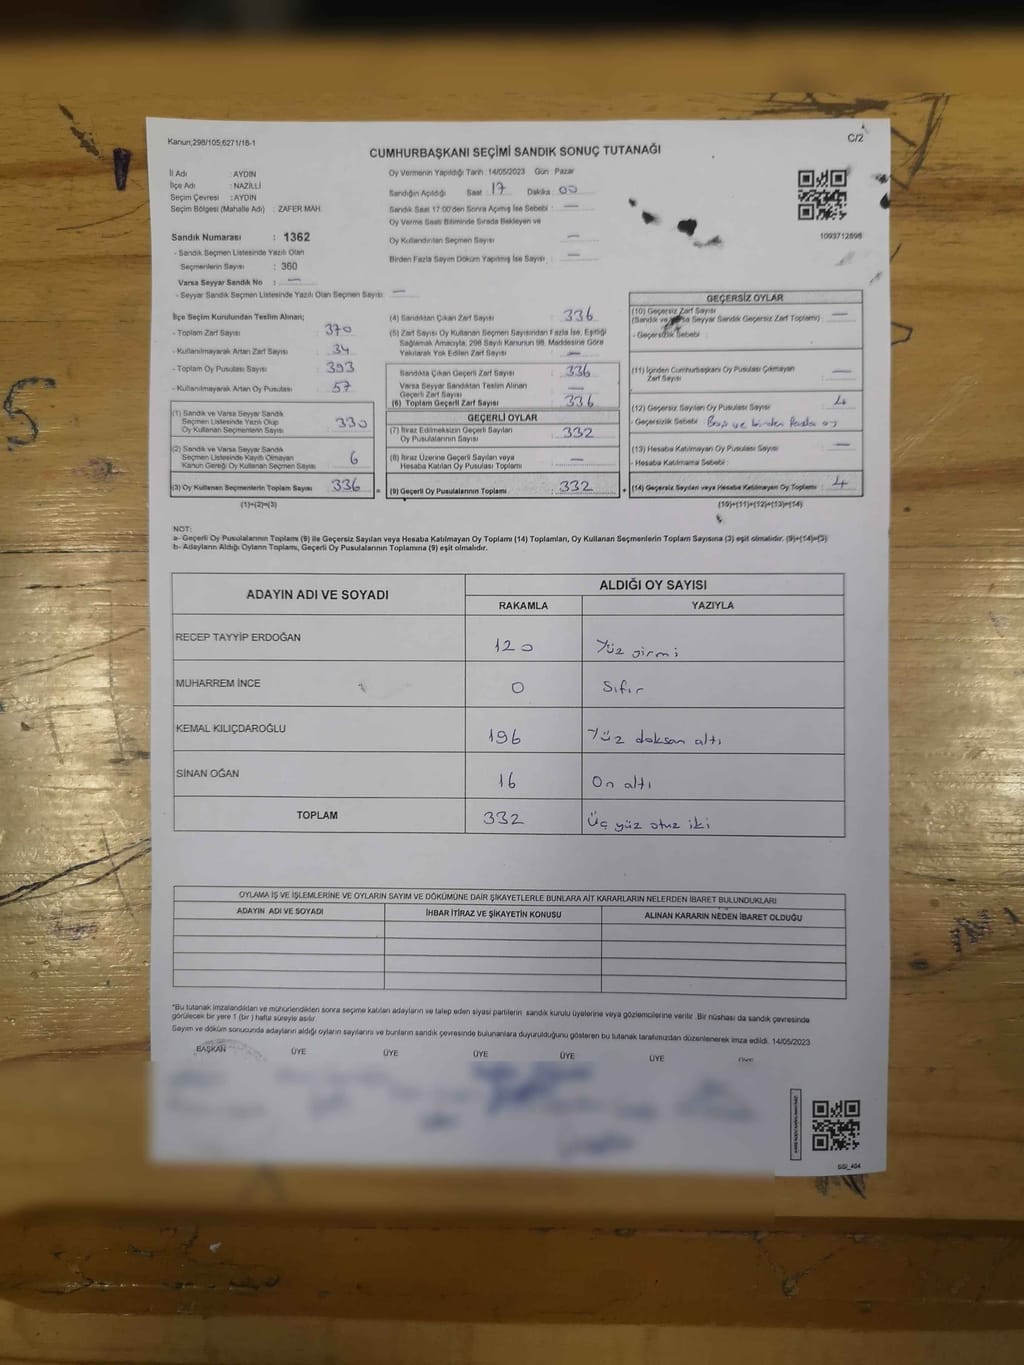 Kanun;298/105;6271/18-1
C/2
CUMHURBAŞKANI SEÇİMİ SANDIK SONUÇ TUTANAĞI
İl Adı : AYDIN
İlçe Adı : NAZİLLİ
Seçim Çevresi : AYDIN
Seçim Bölgesi (Mahalle Adı) : ZAFER MAH.
Sandık Numarası : 1362
- Sandık Seçmen Listesinde Yazılı Olan
Seçmenlerin Sayısı : 360
Varsa Seyyar Sandık No : —
- Seyyar Sandık Seçmen Listesinde Yazılı Olan Seçmen Sayısı: —
Oy Vermenin Yapıldığı Tarih : 14/05/2023 Gün : Pazar
Sandığın Açıldığı Saat : 17 Dakika : 00
Sandık Saat 17:00'den Sonra Açılmış İse Sebebi : —
Oy Verme Saati Bitiminde Sırada Bekleyen ve
Oy Kullandırılan Seçmen Sayısı : —
Birden Fazla Sayım Döküm Yapılmış İse Sayısı : —
1093712898
İlçe Seçim Kurulundan Teslim Alınan;
- Toplam Zarf Sayısı : 370
- Kullanılmayarak Artan Zarf Sayısı : 34
- Toplam Oy Pusulası Sayısı : 393
- Kullanılmayarak Artan Oy Pusulası : 57
(1) Sandık ve Varsa Seyyar Sandık
Seçmen Listesinde Yazılı Olup
Oy Kullanan Seçmenlerin Sayısı : 330
(2) Sandık ve Varsa Seyyar Sandık
Seçmen Listesinde Kayıtlı Olmayan
Kanun Gereği Oy Kullanan Seçmen Sayısı : 6
(3) Oy Kullanan Seçmenlerin Toplam Sayısı : 336
(1)+(2)=(3)
(4) Sandıktan Çıkan Zarf Sayısı : 336
(5) Zarf Sayısı Oy Kullanan Seçmen Sayısından Fazla İse, Eşitliği
Sağlamak Amacıyla, 298 Sayılı Kanunun 98. Maddesine Göre
Yakılarak Yok Edilen Zarf Sayısı : —
Sandıkta Çıkan Geçerli Zarf Sayısı : 336
Varsa Seyyar Sandıktan Teslim Alınan
Geçerli Zarf Sayısı : —
(6) Toplam Geçerli Zarf Sayısı : 336
GEÇERLİ OYLAR
(7) İtiraz Edilmeksizin Geçerli Sayılan
Oy Pusulalarının Sayısı : 332
(8) İtiraz Üzerine Geçerli Sayılan veya
Hesaba Katılan Oy Pusulası Toplamı : —
(9) Geçerli Oy Pusulalarının Toplamı : 332
GEÇERSİZ OYLAR
(10) Geçersiz Zarf Sayısı
(Sandık ve Varsa Seyyar Sandık Geçersiz Zarf Toplamı) : —
- Geçersizlik Sebebi :
(11) İçinden Cumhurbaşkanı Oy Pusulası Çıkmayan
Zarf Sayısı : —
(12) Geçersiz Sayılan Oy Pusulası Sayısı : 4
- Geçersizlik Sebebi : Boş ve birden fazla oy
(13) Hesaba Katılmayan Oy Pusulası Sayısı : —
- Hesaba Katılmama Sebebi :
(14) Geçersiz Sayılan veya Hesaba Katılmayan Oy Toplamı : 4
(10)+(11)+(12)+(13)=(14)
NOT:
a- Geçerli Oy Pusulalarının Toplamı (9) ile Geçersiz Sayılan veya Hesaba Katılmayan Oy Toplamı (14) Toplamları, Oy Kullanan Seçmenlerin Toplam Sayısına (3) eşit olmalıdır. (9)+(14)=(3)
b- Adayların Aldığı Oyların Toplamı, Geçerli Oy Pusulalarının Toplamına (9) eşit olmalıdır.
ADAYIN ADI VE SOYADI
ALDIĞI OY SAYISI
RAKAMLA YAZIYLA
RECEP TAYYİP ERDOĞAN 120 Yüz yirmi
MUHARREM İNCE 0 Sıfır
KEMAL KILIÇDAROĞLU 196 Yüz doksan altı
SİNAN OĞAN 16 On altı
TOPLAM 332 Üç yüz otuz iki
OYLAMA İŞ VE İŞLEMLERİNE VE OYLARIN SAYIM VE DÖKÜMÜNE DAİR ŞİKAYETLERLE BUNLARA AİT KARARLARIN NELERDEN İBARET BULUNDUKLARI
ADAYIN ADI VE SOYADI İHBAR İTİRAZ VE ŞİKAYETİN KONUSU ALINAN KARARIN NEDEN İBARET OLDUĞU
*Bu tutanak imzalandıktan ve mühürlendikten sonra seçime katılan adayların ve talep eden siyasi partilerin sandık kurulu üyelerine veya gözlemcilerine verilir. Bir nüshası da sandık çevresinde
görülecek bir yere 1 (bir) hafta süreyle asılır.
Sayım ve döküm sonucunda adayların aldığı oyların sayılarını ve bunların sandık çevresinde bulunanlara duyurulduğunu gösteren bu tutanak tarafımızdan düzenlenerek imza edildi. 14/05/2023
BAŞKAN ÜYE ÜYE ÜYE ÜYE ÜYE ÜYE
SGİ_404